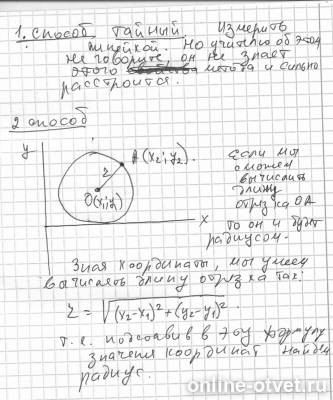 1. способ тайный. Измерить
линейкой. Но учителю об этом
не говорите, он не знает
этого метода и сильно
расстроится.
2 способ
y
A (x2; y2).
r
O(x1; y1)
x
Если мы
сможем
вычислить
длину
отрезка OA
то он и будет
радиусом.
Зная координаты, мы умеем
вычислять длину отрезка так:
r = √(x2-x1)² + (y2-y1)² .
т.е. подставив в эту формулу
значения координат найдем
радиус.
online-otvet.ru